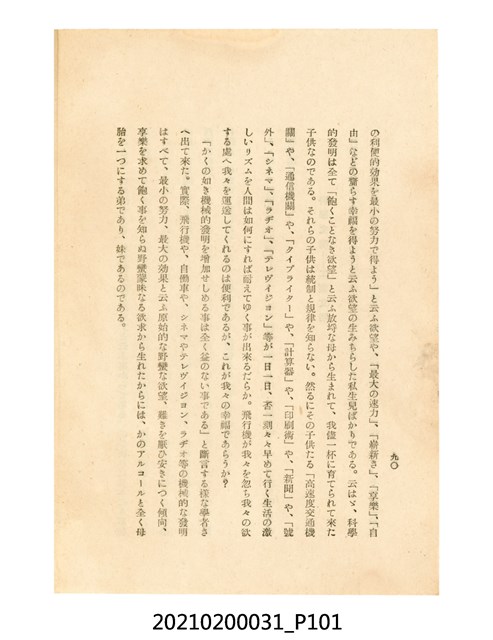 の利便的効果を最小の努力で得よう」と云ふ欲望や、「最大の速力」、「嶄新さ」、「享樂」、「自
由」などの齎らす幸福を得ようと云ふ欲望の生みちらした私生兒ばかりである。云はゞ、科學
的發明は全て「飽くことなき欲望」と云ふ放埓な母から生まれて、我儘一杯に育てられて來た
子供なのである。それらの子供は統制と規律を知らない。然るにその子供たる「高速度交通機
關」や、「通信機關」や、「タイプライター」や、「計算器」や、「印刷術」や、「新聞」や、「號
外」、「シネマ」、「ラヂオ」、「テレヴイジヨン」等が一日一日、否一刻々々早めて行く生活の激
しいリズムを人間は如何にすれば耐えてゆく事が出來るだらか。飛行機が我々を忽ち我々の欲
する處へ我々を運送してくれるのは便利であるが、これが我々の幸福であらうか？
「かくの如き機械的發明を增加せしめる事は全く益のない事である」と斷言する樣な學者さ
へ出て來た。實際、飛行機や、自働車や、シネマやテレヴイジヨン、ラヂオ等の機械的な發明
はすべて、最小の努力、最大の効果と云ふ原始的な野蠻な欲望、難きを厭ひ安きにつく傾向、
享樂を求めて飽く事を知らぬ野蠻蒙昧なる欲求から生れたからには、かのアルコールと全く母
胎を一つにする弟であり、妹であるのである。
九〇
20210200031_P101